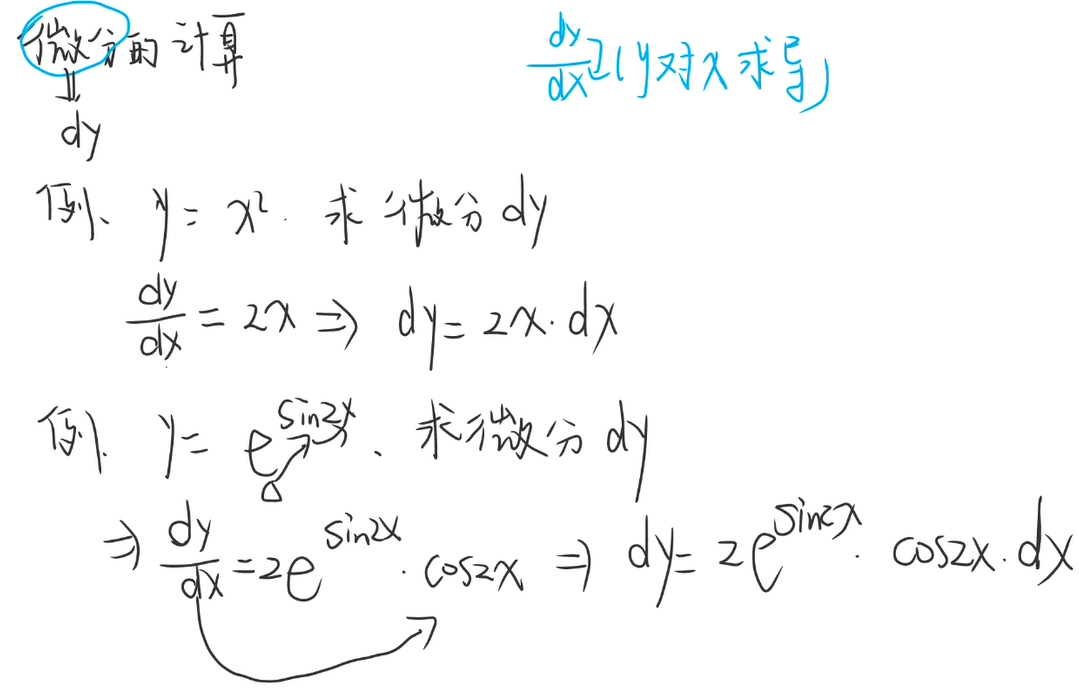 微分的计算
dy/dx (y对x求导)
dy
例、 y = x². 求微分dy
dy/dx = 2x ⇒ dy = 2x·dx
例、 y = e^sin2x、求微分dy
⇒ dy/dx = 2e^sin2x · cos2x ⇒ dy = 2e^sin2x · cos2x · dx